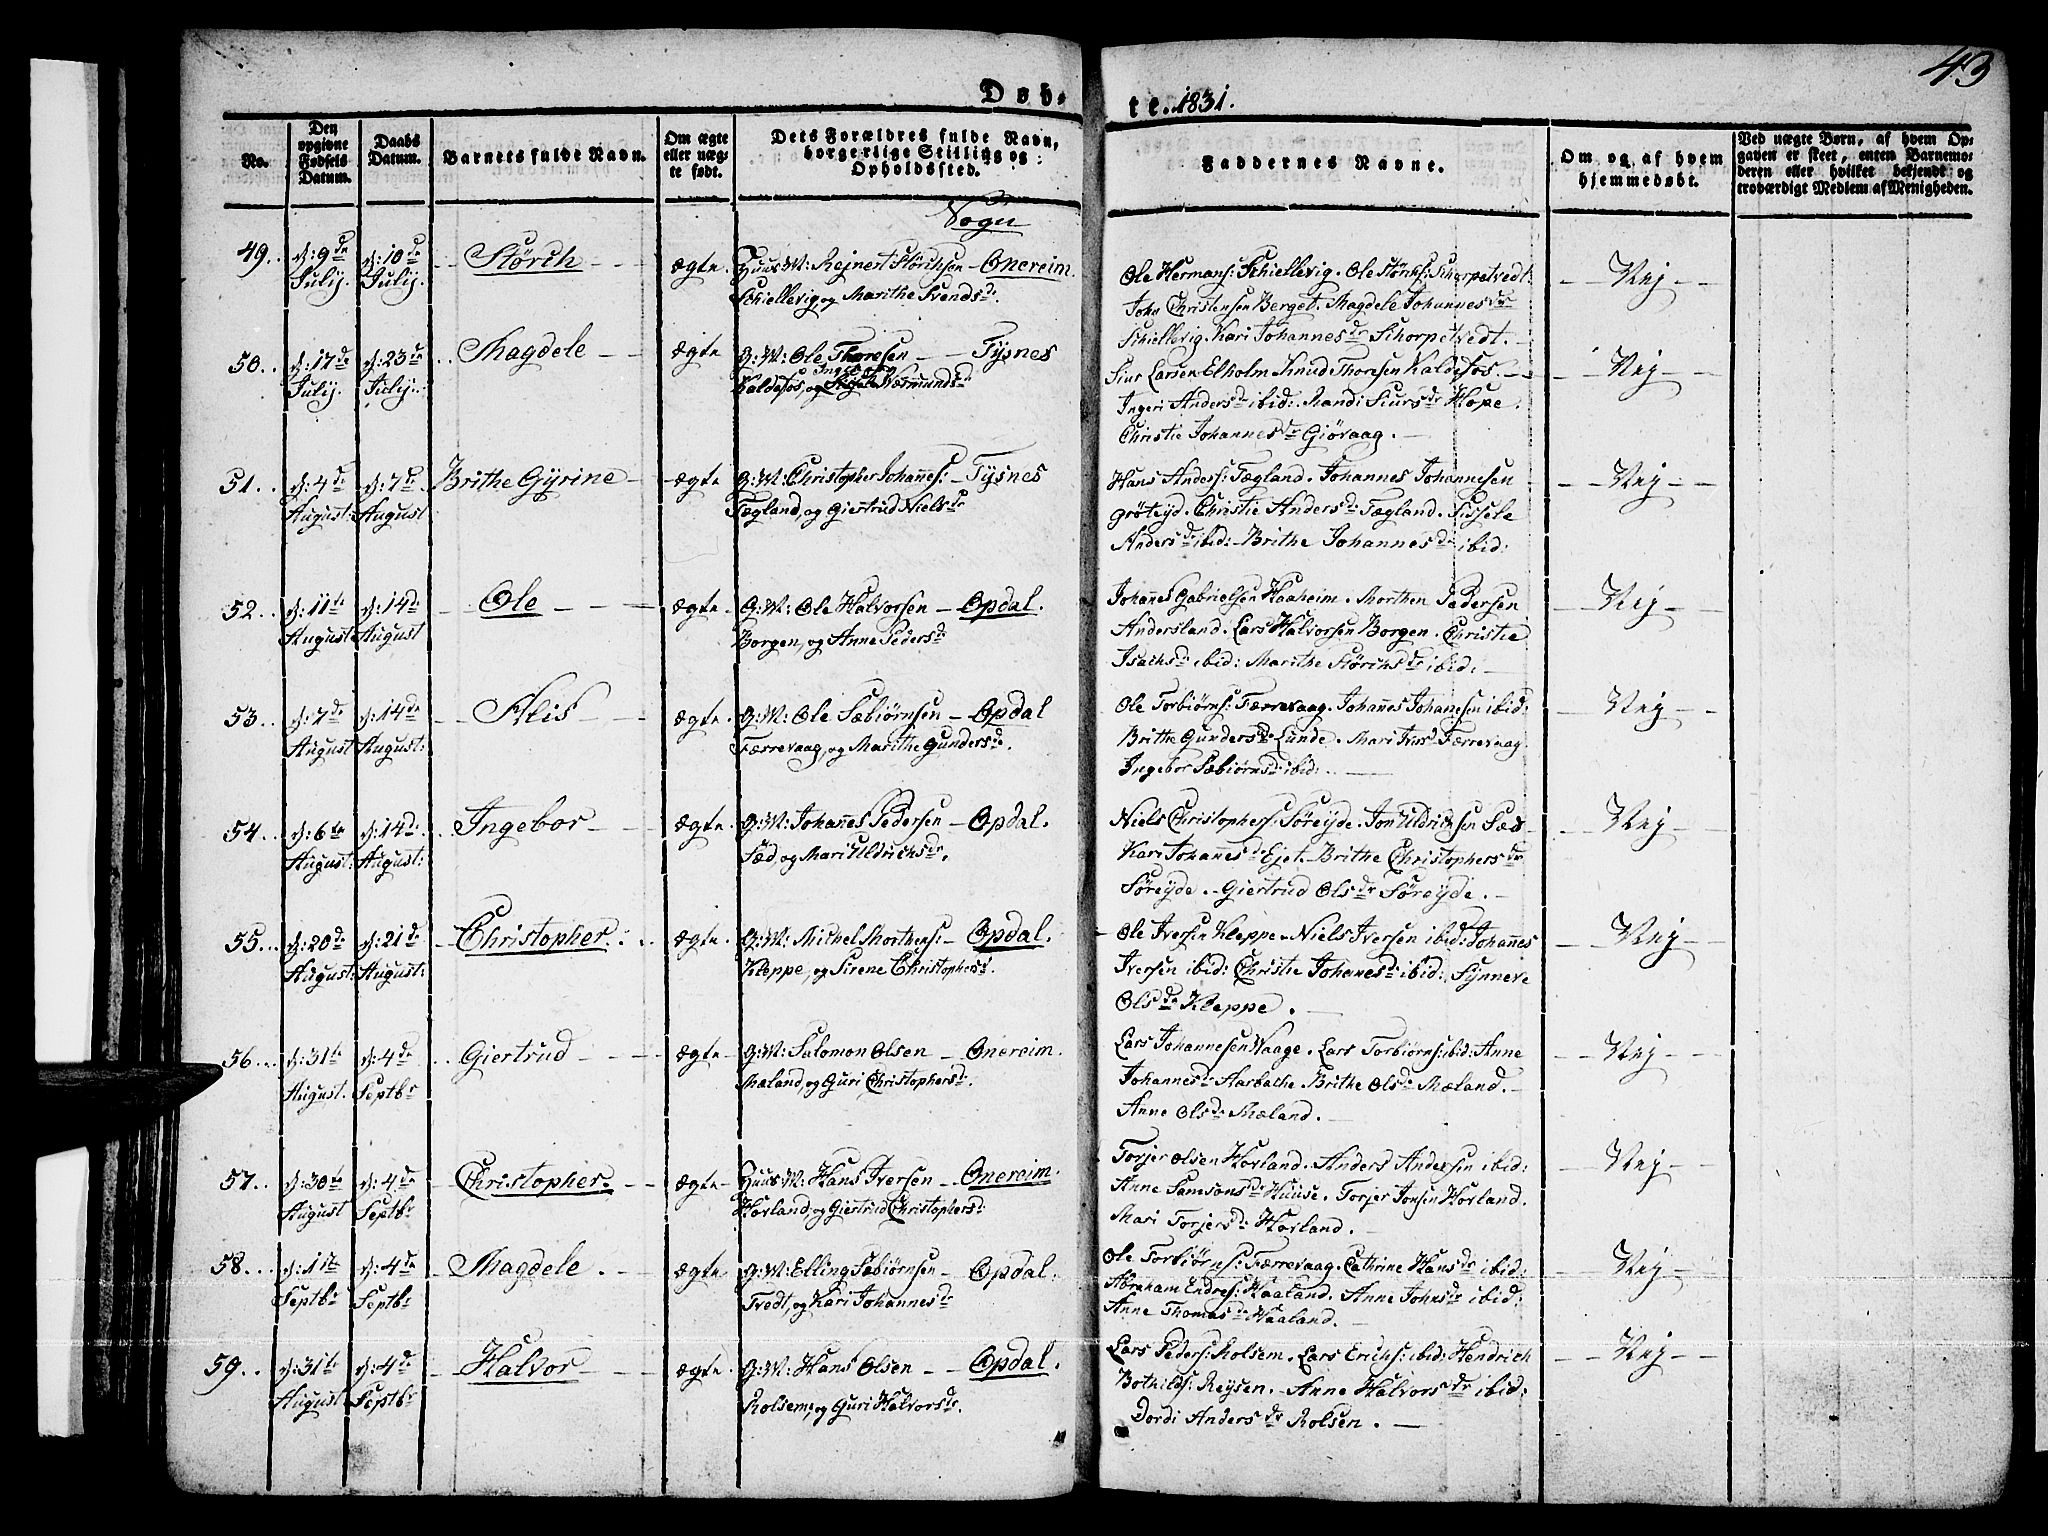 43
Døb-
te. 1831.
No.
Den opgivne Fødsels Datum.
Daabs Datum.
Barnets fulde Navn.
Om ægte eller uæg-te født.
Dets Forældres fulde Navn, borgerlige Stilling og Opholdssted.
Faddernes Navne.
Om og af hvem hjemmedøbt.
Ved uægte Børn, af hvem Op-gaven er skeet, enten Barnemo-deren eller hvilket bekjendt og troværdigt Medlem af Menigheden.
Sogn
49. d: 9de Julij. d: 10de Julij. Störch ægte. Huus M: Rejnert Störchsen Onereim.
Schiellevig og Marithe Svendsdr.
Ole Hermans: Schiellevig. Ole Störchs: Schorpetvedt:
John Christensen Berget. Magdele Johannesdr
Schiellevig. Kari Johannesdr Schorpetvedt.
Nej
50. d: 17de Julij. d: 23de Julij. Magdele ægte G: M: Ole Thoresen Tysnes
Kaldefos, og Wermundsdr
Siur Larsen Elholm Knud Thoresen Kaldefos.
Ingeri Andersdr ibid: Mandi Siursdr Hope.
Christie Johannesdr Giøvaag.
Nej
51. d: 4de August: d: 7de August Brithe Gÿrine ægte G: M: Christopher Johañes: Tysnes
Tægland, og Giertrud Nielsdr
Hans Anders: Tægland. Johannes Johannesen
Grøteyd. Christie Andersdr Tægland. Sissele
Andersdr ibid: Brithe Johannesdr ibid:
Nej
52. d: 11te August d: 14de August Ole ægte G: M: Ole Halvorsen Opdal.
Borgen, og Anne Pedersdr
Johañes Gabrielsen Haaheim. Morthen Pedersen
Andersland. Lars Halvorsen Borgen. Christie
Isachsdr ibid: Marithe Störchsdr ibid:
Nej
53. d: 7de August d: 14de August: Nils ægte G: M: Ole Sæbiørnsen Opdal
Færrevaag, og Marithe Gundersdr.
Ole Torbiørns: Færrevaag. Johañes Johanesen ibid:
Brithe Gundersdr Lunde. Mari Ivrsd Færrevaag
Ingebor Sæbiørnsdr ibid:
Nej
54. d: 6te August: d: 14de August: Ingebor ægte. G: M: Johañes Pedersen Opdal.
Sæd, og Mari Uldrichsdr.
Niels Christophers: Søreÿde. Jon Uldrichsen Sæd
Kari Johañesdr Ejet. Brithe Christophersdr
Søreÿde. Giertrud Olsdr Søreÿde.
Nej
55. d: 20de August: d: 21de August: Christopher. ægte G: M: Michel Morthens: Opdal.
Kleppe, og Sirene Christophersd.
Ole Iversen Kleppe. Niels Iversen ibid: Johañes
Iversen ibid: Christie Johanesdr ibid: Synneve
Olsdr Kleppe.
Nej
56. d: 31te August. d: 4de Septbr Giertrud ægte G: M: Salomon Olsen Onereim.
Mæland, og Guri Christophersdr.
Lars Johannesen Waage. Lars Torbiørns: ibid: Anne
Johannesdr Aarbache. Brithe Olsdr Mæland.
Anne Olsdr Mæland.
Nej
57. d: 30te August d: 4de Septbr Christopher. ægte Huus M: Hans Iversen Onereim.
Hovland, og Giertrud Christophersd:
Torjer Olsen Hovland. Anders Andersen ibid:
Anne Samsonsdr Huuse. Torjer Jonsen Hovland.
Mari Torjersdr Hovland.
Nej
58. d: 1ste Septbr d: 4de Septbr Magdele. ægte G: M: Elling Sæbiørnsen Opdal.
Tvedt, og Kari Johannesdr
Ole Torbiørns: Færrevaag. Cathrine Hansdr ibid:
Abraham Endres: Haaland. Anne Johnsdr ibid:
Anne Thomasdr Haaland.
Nej
59. d: 31te August d: 4de Septbr Halvor ægte. G: M: Hans Olsen Opdal.
Rolsem, og Guri Halvorsdr.
Lars Peders: Rolsem. Lars Erichs: ibid: Hendrich
Bothilds: Reÿsen. Anne Halvorsdr ibid:
Dordi Andersdr Rolsen.
Nej